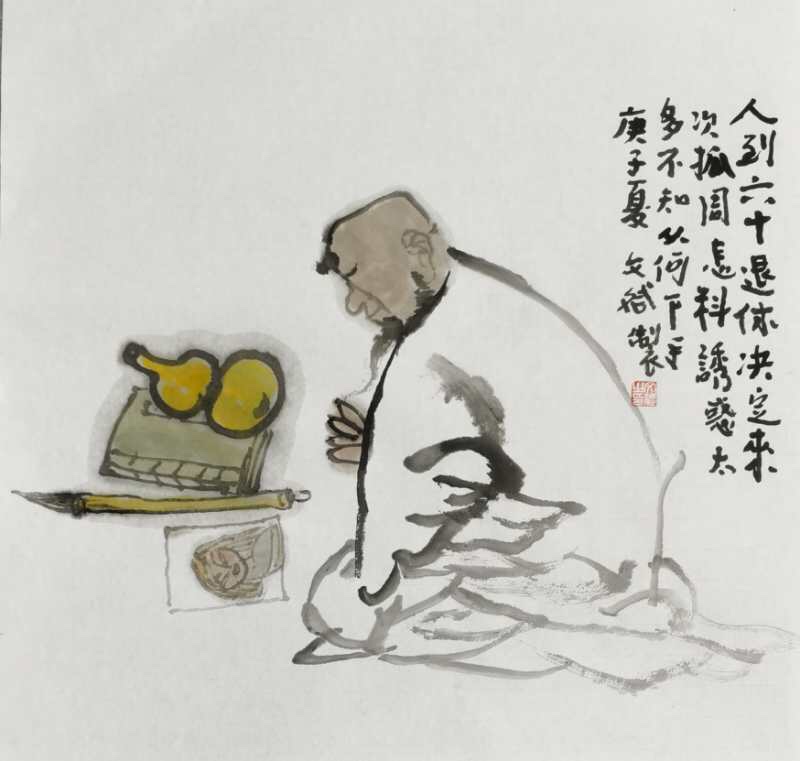 人到六十退休决定來
次抓周怎料誘惑太
多不知从何下手
庚子夏 文 製